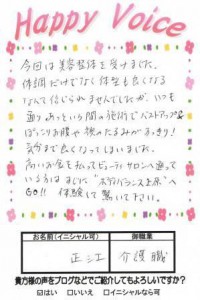 Happy Voice
今回は美容整体を受けました。
体調だけでなく体型も良くなる
なんて信じられませんでしたが、いつも
通りあっという間の施術でバストアップ&
ぽっこりお腹や横のたるみがすっきり!
気分まで良くなってしまいました。
高いお金を払ってビューティサロンへ通って
いる方はまじに"ボディバランス上原"へ
GO!! 体験して驚いて下さい。
お名前(イニシャル可) 御職業
正江 介護職
貴方様の声をブログなどでご紹介してもよろしいですか?
☑はい □いいえ □イニシャルなら可